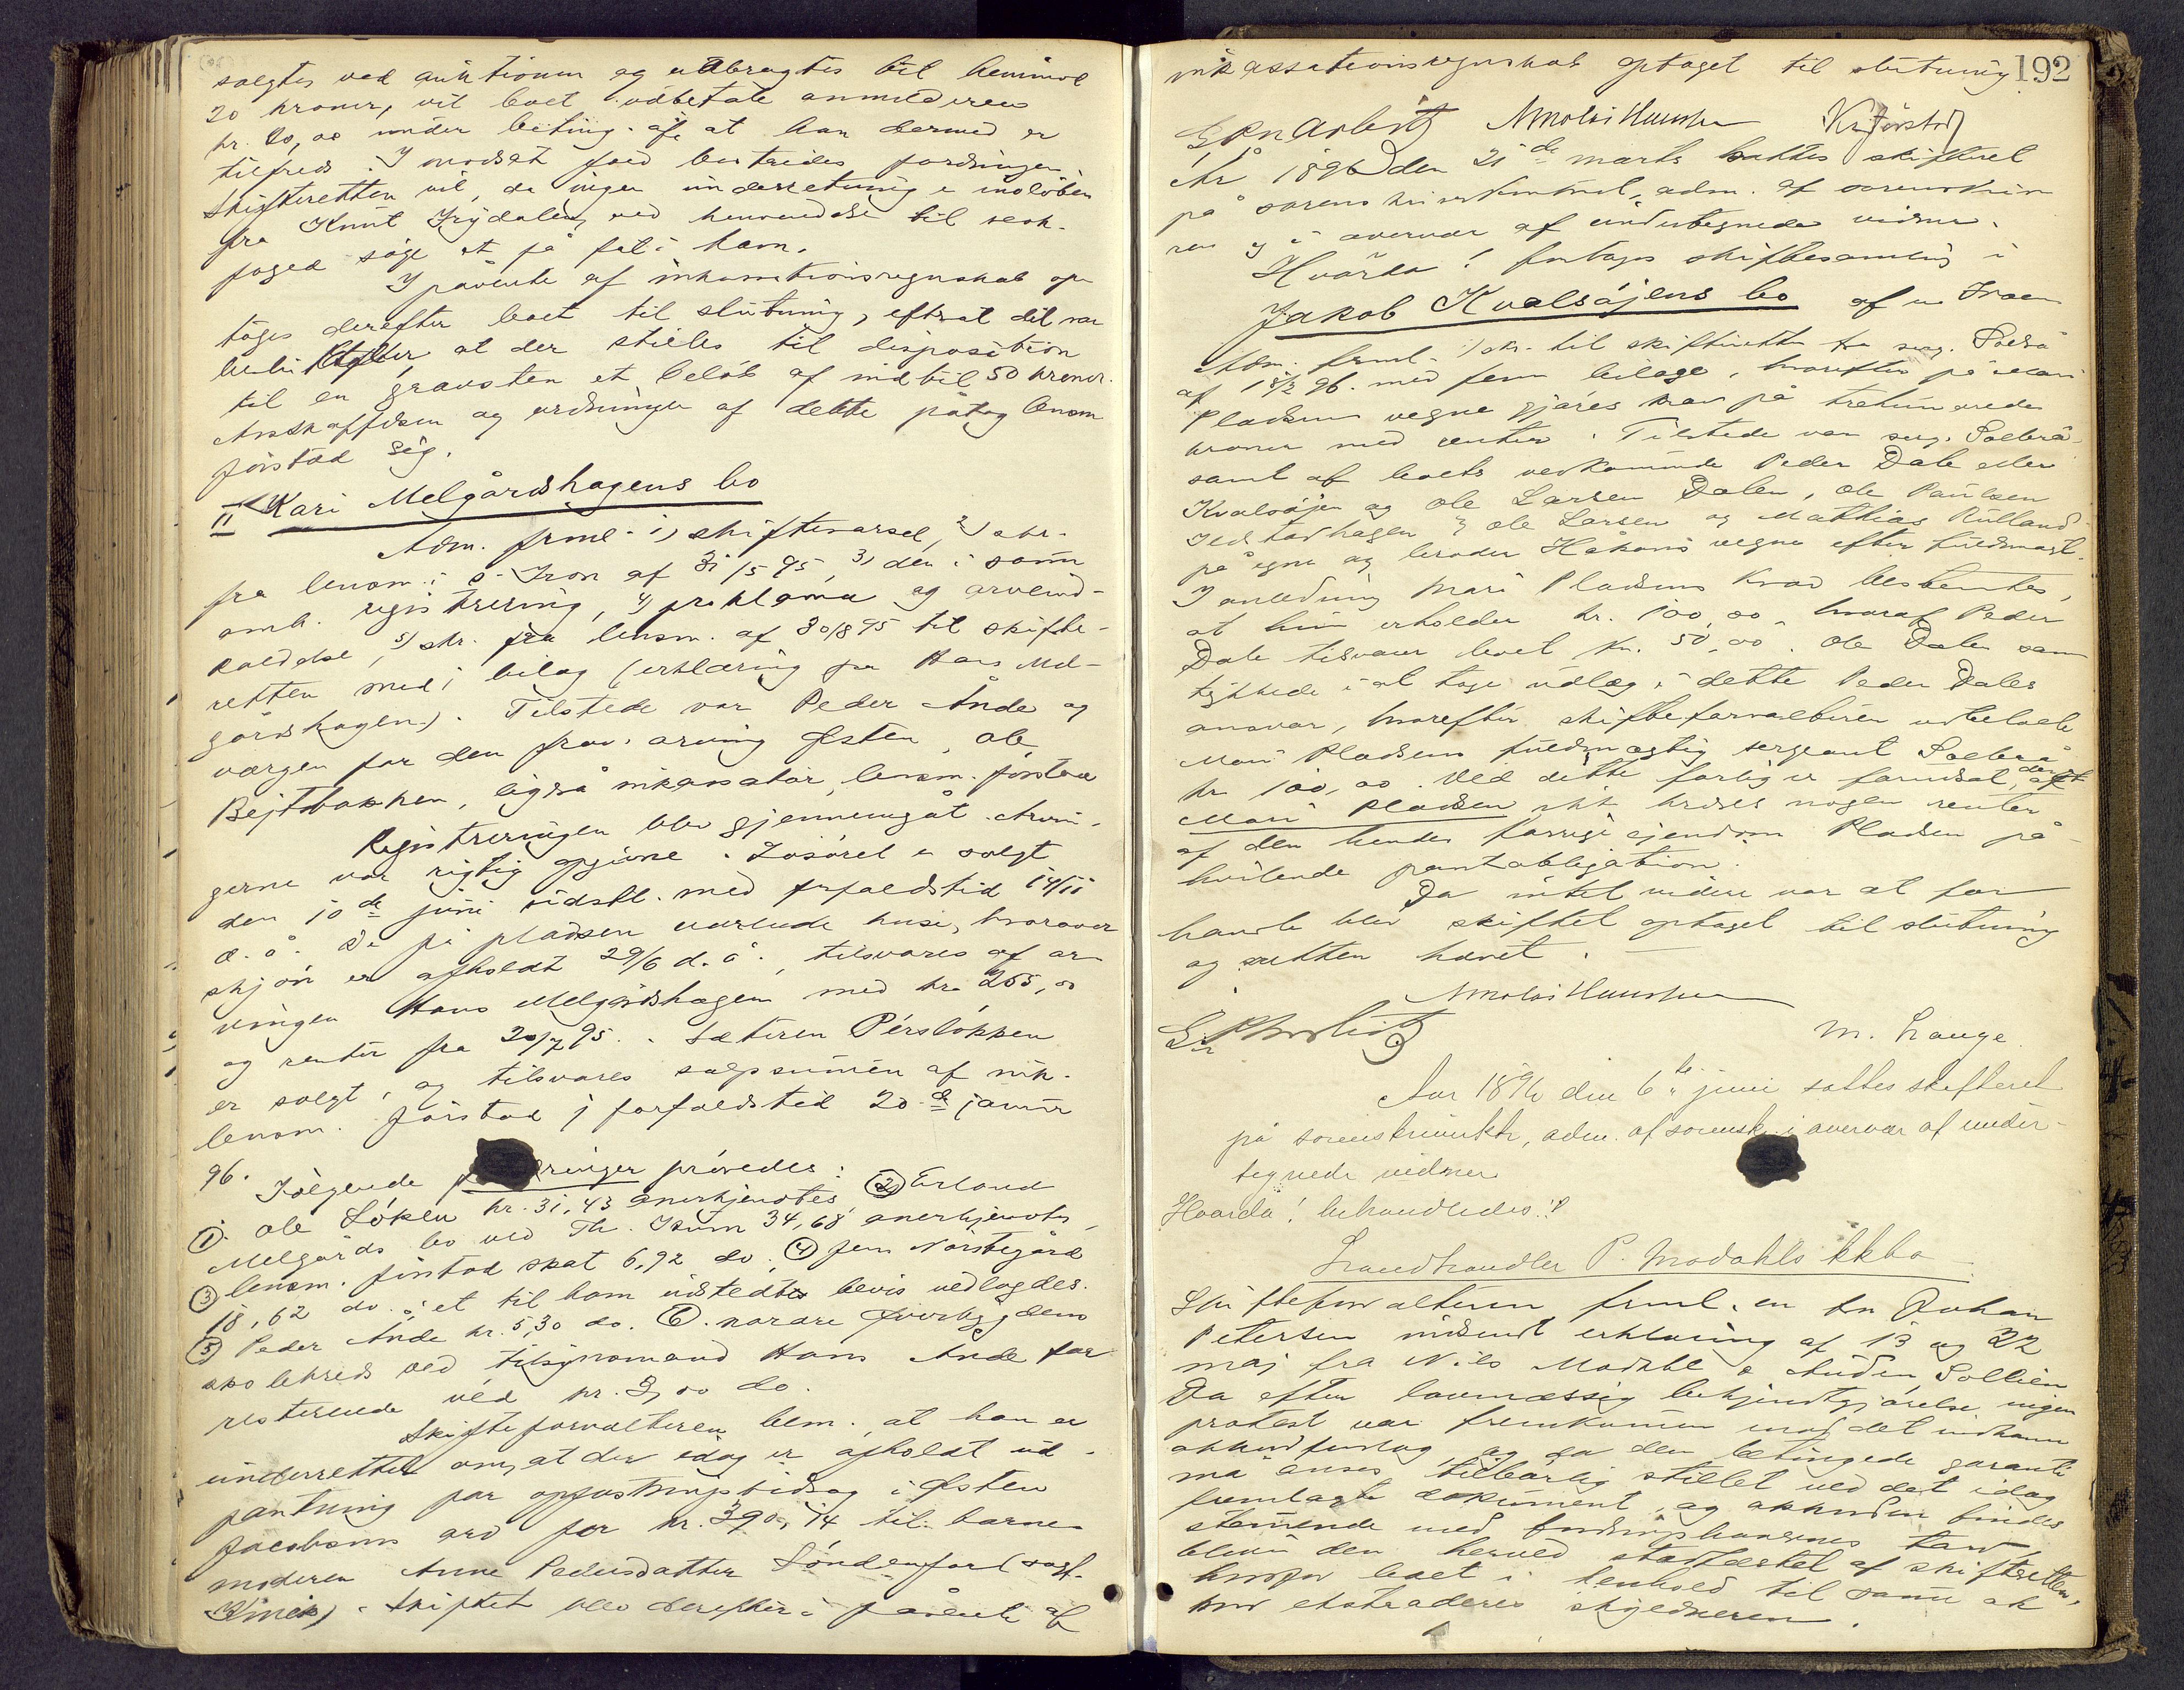 solgtes ved auktionen og udbragtes til henimod
20 kroner, vil boet udbetale anmelderen
kr. 20,00 under beting. af, at han dermed er
tilfreds. I modsat fald bestrides fordringen.
Skifteretten vil, da ingen underretning er indløben
fra Knut Frydalen, ved henvendelse til
foged søge at få fat i ham.
I påvente af inkassationsregnskab op
toges derefter boet til slutning, efterat det var
at der stilles til disposition
til en gravsten et beløb af indtil 50 kroner.
Anskaffelsen og ordningen af dette påtog lensm
Jørstad sig.
II Kari Melgårdshagens bo
Adm. freml. 1) skiftevarsel, 2) skr.
fra lensm. i s. Fron af 31/5 95, 3) den i samme
omh. registrering, 4) proklama og arveind-
kaldelse, 5) skr. fra lensm. af 30/8 95 til skifte-
retten med 1 bilag (erklæring fra Hans Mel-
gårdshagen). Tilstede var Peder Ånde og
værgen for den frav. arving Østen, Ole
Bejtbakken, ligeså inkassator, lensm. Jørstad
Registreringen blev gjennemgåt. Arvin-
gerne var rigtig opgivne. Løsøret er solgt
den 10de juni sidstl. med forfaldstid 14/11
d. å. De på pladsen værende huse, hvorover
skjøn er afholdt 29/6 d. å., tilsvares af ar
vingen Hans Melgårdshagen med kr. 265,00
og renter fra 20/7 95. Sæteren Persløkken
er solgt, og tilsvares salgssummen af ink.
lensm. Jørstad, forfaldstid 20de januar
96.
Følgende ringer prøvedes:
1. Ole Løken kr. 31,43 anerkjendtes, 2 Erland
Melgårds bo ved Th. Isum 34,68 anerkjendtes,
3 lensm. Jørstad skat 6,92 do., 4 Jens Nørstegård
18,62 do.; et til ham udstedt bevis vedlagdes.
5 Peder Ånde kr. 5,30 do. 6. nordre
skolekreds ved tilsynsmand Hans Ånde for
resterende ved kr. 3,00 do.
Skifteforvalteren bem. at han er
underrettet om, at der idag er afholdt ud-
pantning for opfostringsbidrag i Østen
Jacobsens arv for kr. 390,14 til barne
moderen Anne Pedersdatter Søndenfor (
Skiftet blev derefter i påvente af
inkassationsregnskab optaget til slutning 192
Nicolai Kr Jørstad
År 1896 den 21de marts sattes skifteret
på sorenskriverkontoret, adm. af sorenskrive
ren og i overvær af undertegnede vidner.
Hvorda! foretoges skiftesamling i
Jakob Kvalsøjens bo af n. Fron
Adm. freml. 1) skr. til skifteretten fra serg. Solbrå
af 18/3 96. med fem bilage, hvorefter på Mari
Pladsens vegne gjøres krav på trehundrede
kroner med renter. Tilstede var serg. Solbrå
samt af boets vedkommende Peder Dale eller
Kvalsøjen og Ole Larsen Dalen, Ole Paulsen
og Ole Larsen og Mathias Rulland
på egne og broder Håkons vegne efter fuldmagt.
I anledning Mari Pladsens krav bestemtes,
at hun erholder kr. 100,00 hvoraf Peder
Dale tilsvarer boet kr. 50,00. Ole Dalen sam
tykkede i at tage udlæg i dette Peder Dales
ansvar, hvorefter skifteforvalteren udbetalte
Mari Pladsens fuldmægtig sergeant Solbrå
kr. 100,00. Ved dette forlig er forudsat, at
Mari Pladsen ikke kræves nogen renter
af den hendes forrige ejendom Pladsen på-
hvilende pantobligation.
Da intet videre var at for
handle blev skiftet optaget til slutning
og retten hævet.
Nicolai
M. Lange.
Aar 1896 den 6te juni sattes skifteret
på sorenskriverktr, adm. af sorensk. i overvær af under-
tegnede vidner
Hvorda! behandledes:
Landhandler P. Modahls kkbo
Skifteforvalteren freml. en fra Johan
Petersen indsendt erklæring af 13 og 22
maj fra Nils Modahl & Auden Sollien
Da efter lovmæssig bekjendtgjørelse ingen
protest var fremkommen mod det indkomne
akkordforslag, og da den betingede garanti
må anses tilbørlig stillet ved det idag
fremlagte dokument, og akkorden findes
stemmende med fordringshavernes tarv,
blev den herved stadfæstet af skifteretten,
hvorfor boet i henhold til samme ak
kord ekstraderes skyldneren.